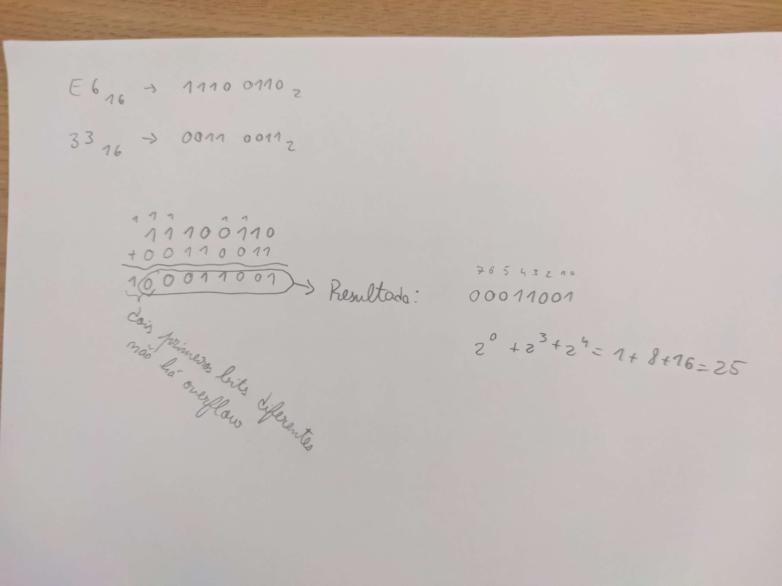 E6₁₆ → 1110 0110₂
33₁₆ → 0011 0011₂
1 1 1 1 1
11100110
+00110011
100011001 → Resultado:
7 6 5 4 3 2 1 0
00011001
2⁰ + 2³ + 2⁴ = 1 + 8 + 16 = 25
dois primeiros bits diferentes
não há overflow